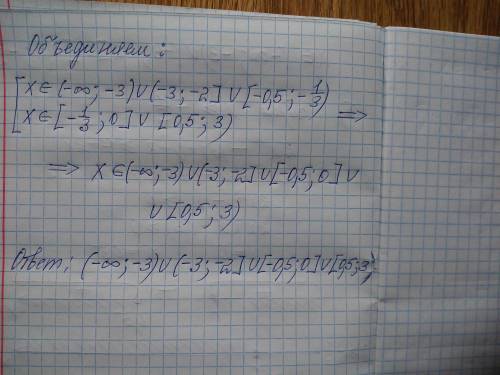 Объединяем:
[ x ∈ (-∞; -3) ∪ (-3; -2] ∪ [-0,5; -1/3)
x ∈ [-1/3; 0] ∪ [0,5; 3) ⇒
⇒ x ∈ (-∞; -3) ∪ (-3; -2] ∪ [-0,5; 0] ∪
∪ [0,5; 3)
Ответ: (-∞; -3) ∪ (-3; -2] ∪ [-0,5; 0] ∪ [0,5; 3)